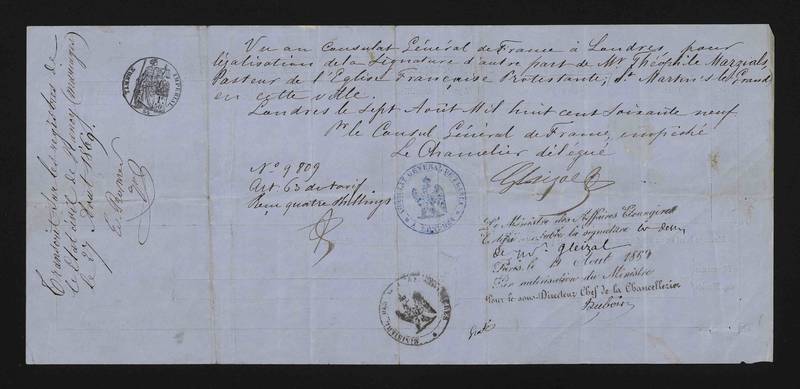 Vu au Consulat Général de France à Londres, pour
légalisation de la Signature d'autre part de Mr Théophile Marzials,
Pasteur de l'Eglise Française Protestante, St Martin's le Grand
en cette ville.
Londres le Sept Août Mil huit cent soixante neuf
Pr le Consul Général de France, empêché
Le Chancelier délégué
No 9809
Art. 63 du tarif
Reçu quatre Shillings
CONSULAT GENERAL DE FRANCE
Le Ministre des Affaires Etrangères
Certifie véritable la signature
de Mr Gleizal
Paris, le Août 186
Par autorisation du Ministre
Pour le sous-Directeur Chef de la Chancellerie
Dubois
Transcrit sur les registres de
le Etat civil de
le 27 1869